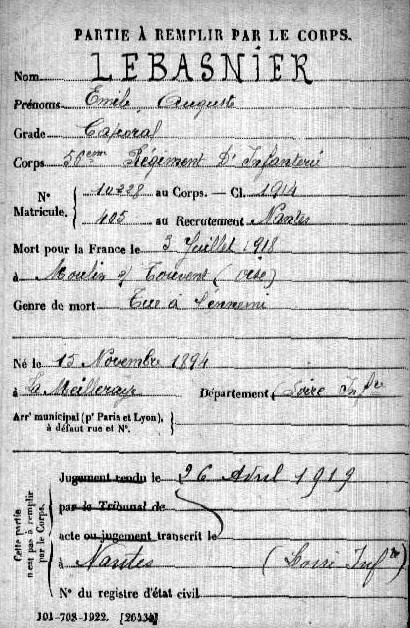 PARTIE À REMPLIR PAR LE CORPS.
Nom LEBASNIER
Prénoms Emile Auguste
Grade Caporal
Corps 56eme Régiment D'Infanterie
N° Matricule. { 10228 au Corps. — Cl. 1914
405 au Recrutement Nantes
Mort pour la France le 3 Juillet 1918
à Moulin s/ Touvent (Oise)
Genre de mort Tué à l'ennemi
Né le 15 Novembre 1894
à La Meilleraye Département Loire Infre
Arrt municipal (pr Paris et Lyon), à défaut rue et N°. }
Cette partie n'est pas à remplir par le Corps.
Jugement rendu le 26 Avril 1919
par le Tribunal de
acte ou jugement transcrit le
à Nantes (Loire Infre)
N° du registre d'état civil
101-708-1922. [26434]